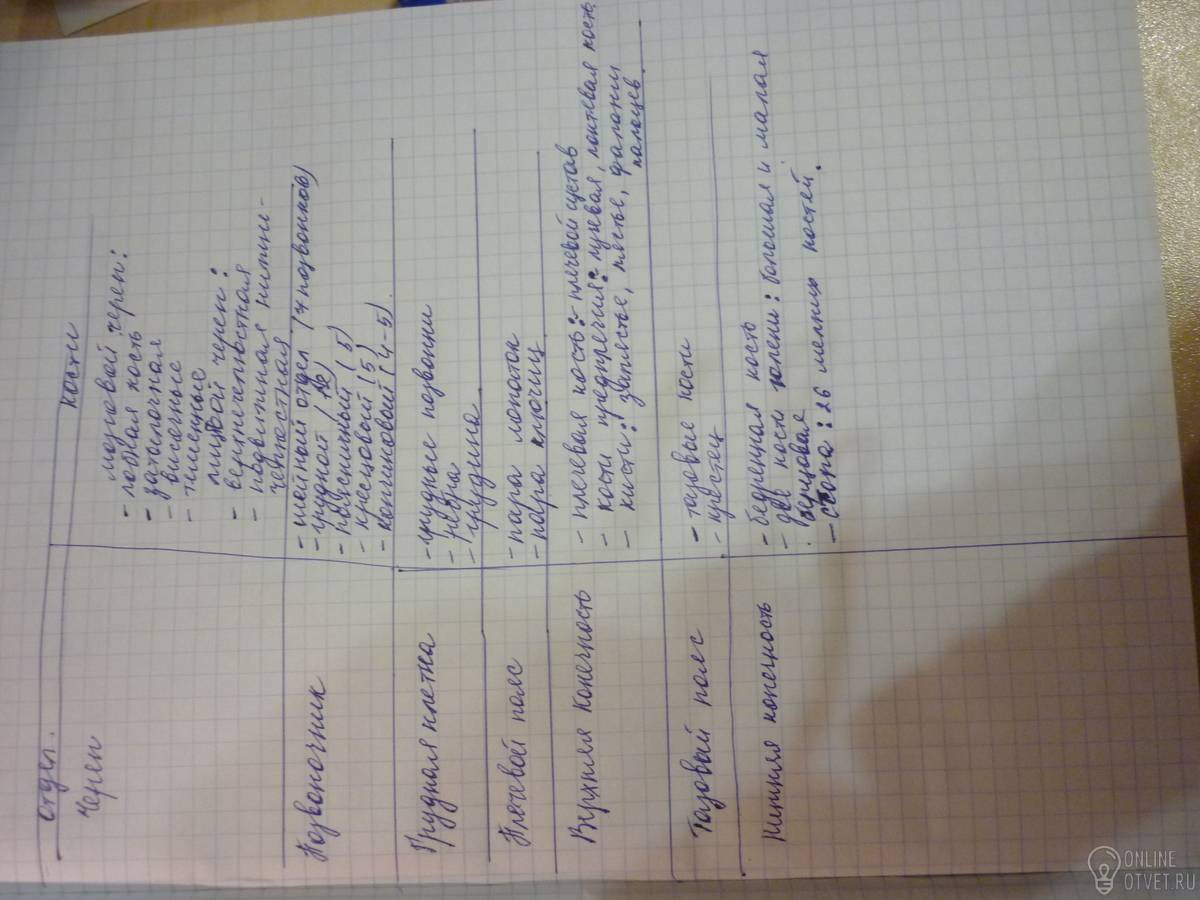 отдел. кости
Череп
мозговой череп:
- лобная кость
- затылочная
- височные
- теменные
лицевой череп:
- верхнечелюстная
- подвижная нижне-
челюстная
Позвоночник
- шейный отдел (7 позвонков)
- грудной (12)
- поясничный (5)
- кресцовый (5)
- копчиковый (4-5)
Грудная клетка
- грудные позвонки
- ребра
- грудина
Плечевой пояс
- пара лопаток
- пара ключиц
Верхняя конечность
- плечевая кость:- плечевой сустав
- кости предплечия: лучевая, локтевая кость
- кисти: запястье, пястье, фаланги
пальцев
Тазовый пояс
- тазовые кости
- крестец
Нижняя конечность
- бедренная кость
- две кости голени: большая и малая
берцовая
- стопа: 26 мелких костей.
ONLINE
OTVET.RU